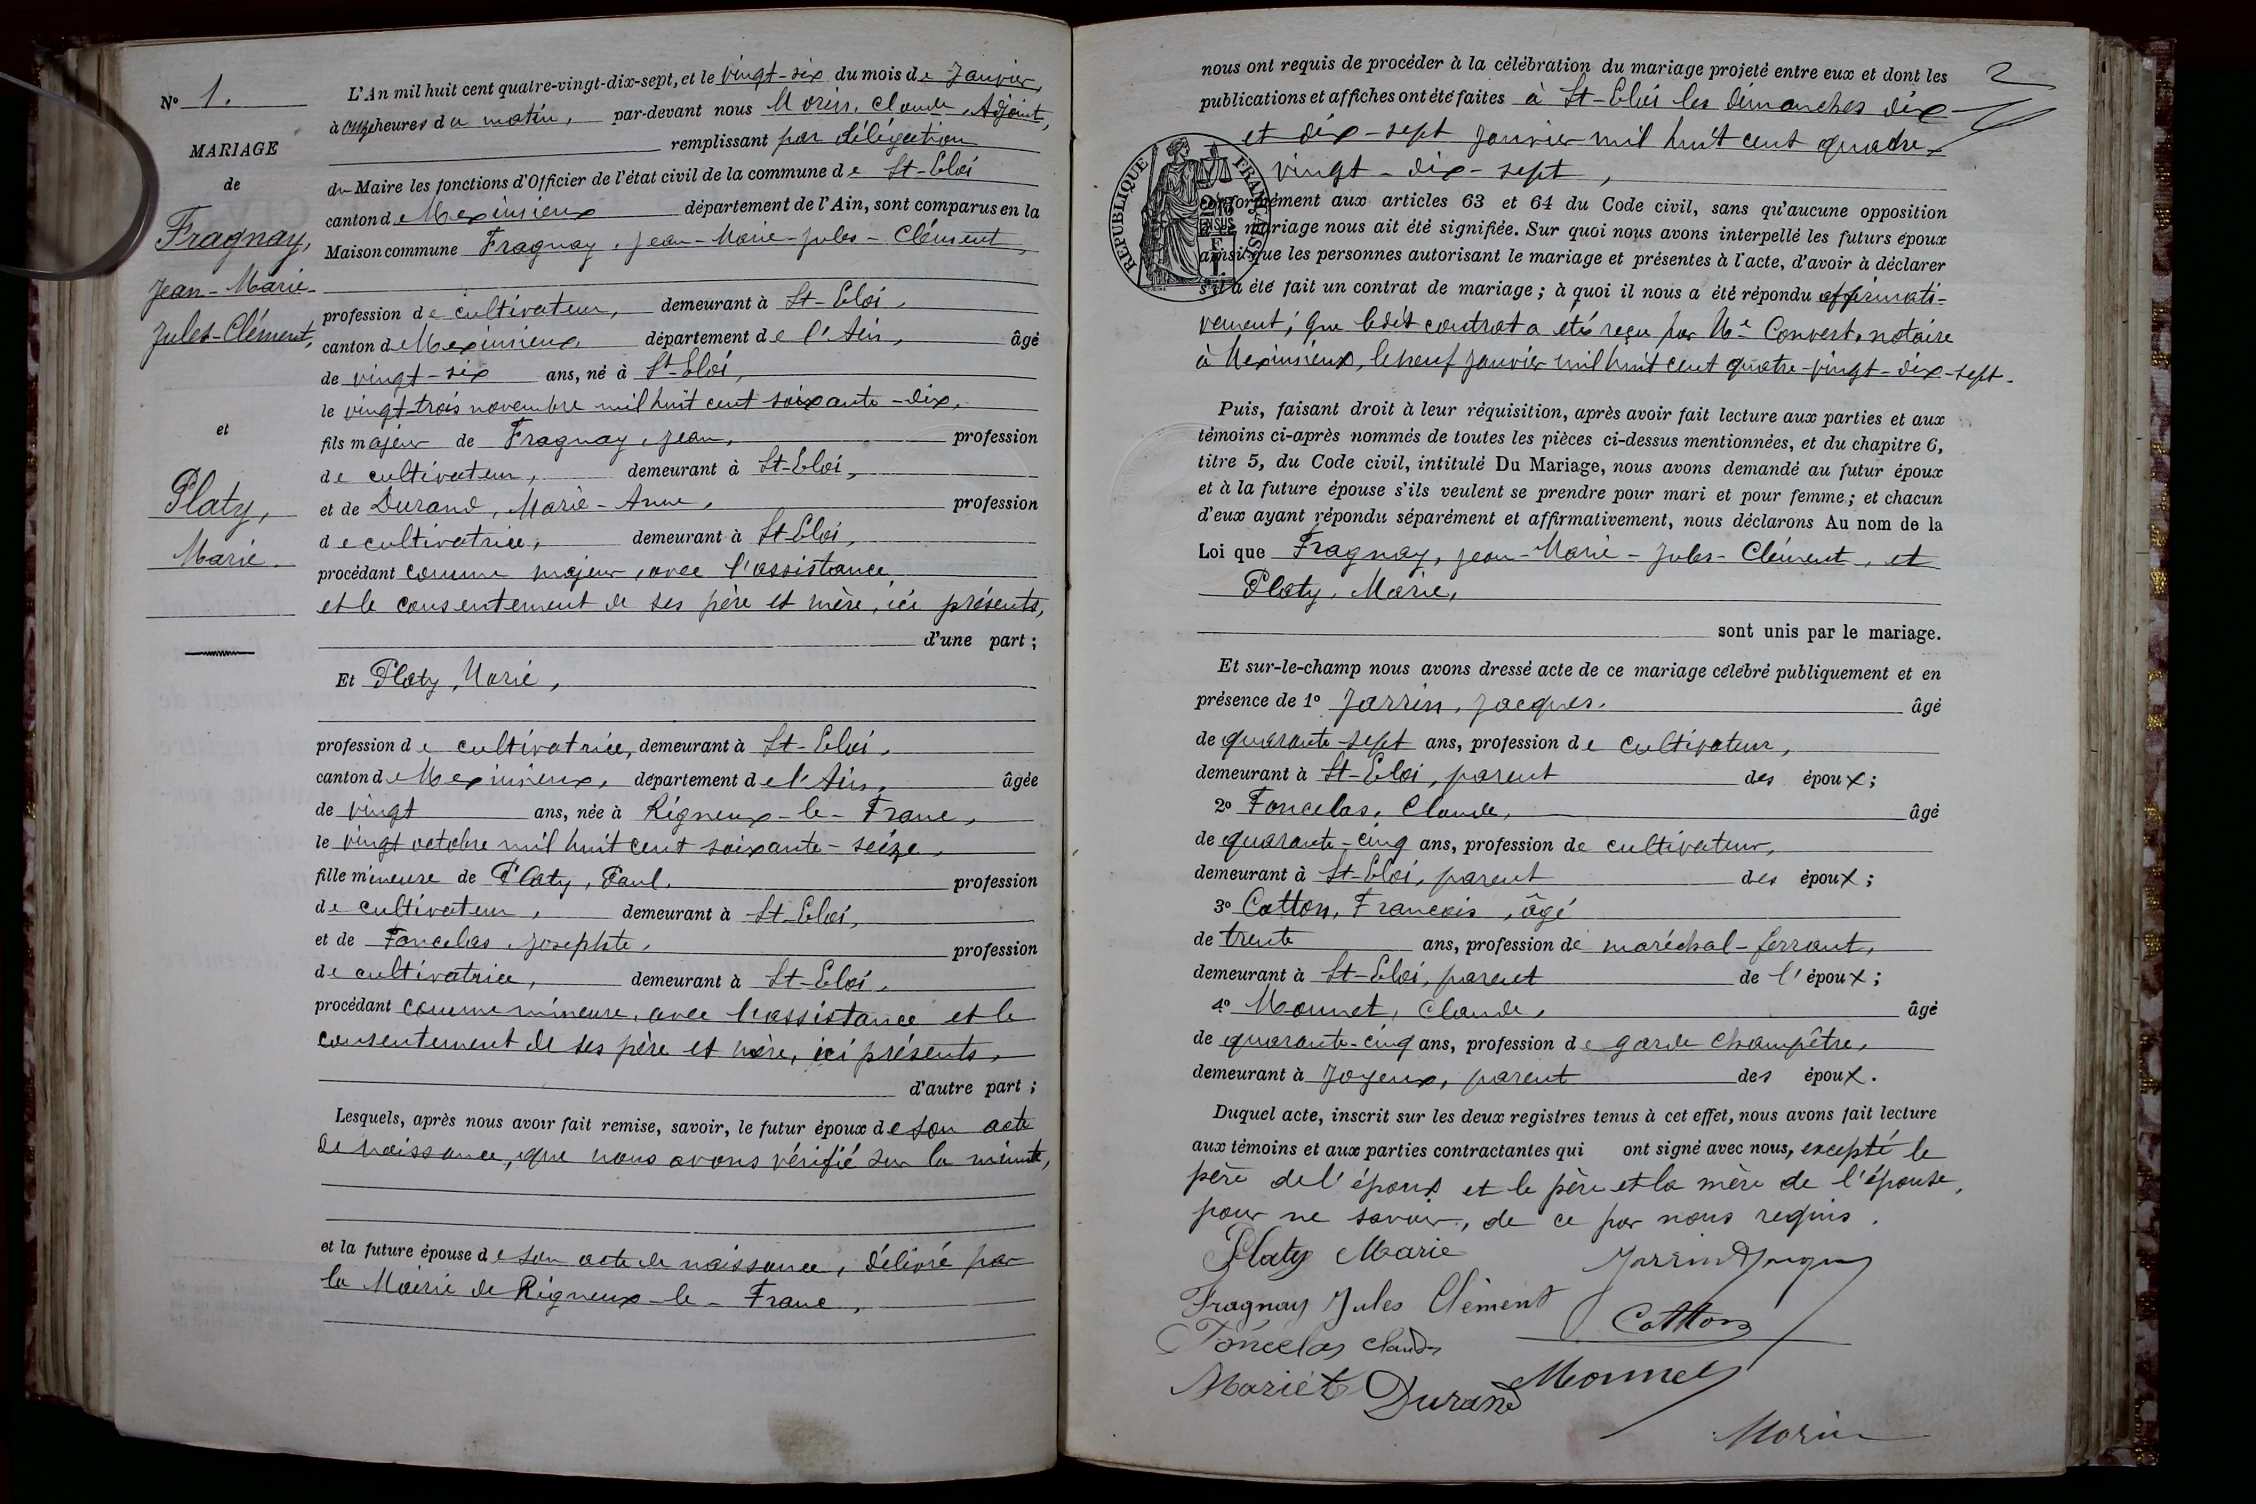 N° 1.
MARIAGE
de
Fragnay,
Jean-Marie-
Jules-Clément,
et
Platy,
Marie.
L'An mil huit cent quatre-vingt-dix-sept, et le vingt-six du mois de Janvier,
à onze heures du matin, par-devant nous Morin, Claude, Adjoint,
remplissant par délégation
du Maire les fonctions d'Officier de l'état civil de la commune de St-Eloi
canton de Meximieux département de l'Ain, sont comparus en la
Maison commune Fragnay, Jean-Marie-Jules-Clément,
profession de cultivateur, demeurant à St-Eloi,
canton de Meximieux, département de l'Ain, âgé
de vingt-six ans, né à St-Eloi,
le vingt-trois novembre mil huit cent soixante-dix,
fils majeur de Fragnay, Jean, profession
de cultivateur, demeurant à St-Eloi,
et de Durand, Marie-Anne, profession
de cultivatrice, demeurant à St-Eloi,
procédant comme majeur, avec l'assistance
et le consentement de ses père et mère, ici présents,
d'une part ;
Et Platy, Marie,
profession de cultivatrice, demeurant à St-Eloi,
canton de Meximieux, département de l'Ain, âgée
de vingt ans, née à Rigneux-le-Franc,
le vingt octobre mil huit cent soixante-seize,
fille mineure de Platy, Paul, profession
de cultivateur, demeurant à St-Eloi,
et de Foncelas, Josephte, profession
de cultivatrice, demeurant à St-Eloi,
procédant comme mineure, avec l'assistance et le
consentement de ses père et mère, ici présents,
d'autre part ;
Lesquels, après nous avoir fait remise, savoir, le futur époux de son acte
de naissance, que nous avons vérifié sur la minute,
et la future épouse de son acte de naissance, délivré par
la Mairie de Rigneux-le-Franc,
2
nous ont requis de procéder à la célébration du mariage projeté entre eux et dont les
publications et affiches ont été faites à St-Eloi les dimanches dix
et dix-sept janvier mil huit cent quatre-
vingt-dix-sept,
REPUBLIQUE FRANÇAISE
conformément aux articles 63 et 64 du Code civil, sans qu'aucune opposition
à ce mariage nous ait été signifiée. Sur quoi nous avons interpellé les futurs époux
ainsi que les personnes autorisant le mariage et présentes à l'acte, d'avoir à déclarer
s'il a été fait un contrat de mariage ; à quoi il nous a été répondu affirmati-
vement; que ledit contrat a été reçu par Me Convert, notaire
à Meximieux, le neuf janvier mil huit cent quatre-vingt-dix-sept.
Puis, faisant droit à leur réquisition, après avoir fait lecture aux parties et aux
témoins ci-après nommés de toutes les pièces ci-dessus mentionnées, et du chapitre 6,
titre 5, du Code civil, intitulé Du Mariage, nous avons demandé au futur époux
et à la future épouse s'ils veulent se prendre pour mari et pour femme ; et chacun
d'eux ayant répondu séparément et affirmativement, nous déclarons Au nom de la
Loi que Fragnay, Jean-Marie-Jules-Clément, et
Platy, Marie,
sont unis par le mariage.
Et sur-le-champ nous avons dressé acte de ce mariage célébré publiquement et en
présence de 1° Jarrin, Jacques, âgé
de quarante-sept ans, profession de cultivateur,
demeurant à St-Eloi, parent des époux ;
2° Foncelas, Claude, âgé
de quarante-cinq ans, profession de cultivateur,
demeurant à St-Eloi, parent des époux ;
3° Cotton, François, âgé
de trente ans, profession de maréchal-ferrant,
demeurant à St-Eloi, parent de l'époux ;
4° Monnet, Claude, âgé
de quarante-cinq ans, profession de garde champêtre,
demeurant à Joyeux, parent des époux.
Duquel acte, inscrit sur les deux registres tenus à cet effet, nous avons fait lecture
aux témoins et aux parties contractantes qui ont signé avec nous, excepté le
père de l'époux et le père et la mère de l'épouse,
pour ne savoir, de ce par nous requis.
Platy Marie
Jarrin Jacques
Fragnay Jules Clément
Cotton
Foncelas Claude
Mariet Durand
Monnet
Morin